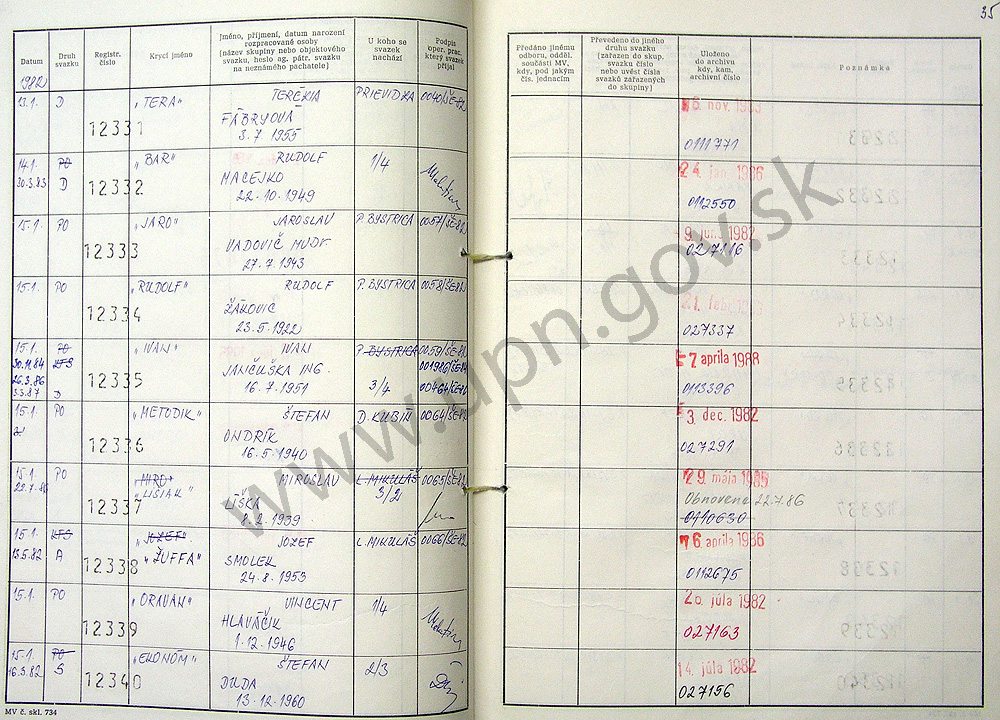 35
Datum
Druh svazku
Registr. číslo
Krycí jméno
Jméno, příjmení, datum narození
rozpracované osoby
(název skupiny nebo objektového
svazku, heslo ag. pátr. svazku
na neznámého pachatele)
U koho se svazek nachází
Podpis oper. prac. který svazek přijal
Předáno jinému odboru, odděl. součásti MV, kdy, pod jakým čís. jednacím
Převedeno do jiného druhu svazku (zařazen do skup. svazku číslo nebo uvést čísla svazků zařazených do skupiny)
Uloženo do archivu kdy, kam, archivní číslo
Poznámka
1982
13.1. D 12331 „TERA" TERÉZIA PRIEVIDZA 0040/ŠE-82
FÁBRYOVÁ
3.7.1955
8. nov. 0111771
14.1. PO 12332 „BAR" RUDOLF 1/4
30.3.83 D MACEJKO
22.10.1949
24. jan. 1986 0112550
15.1. PO 12333 „JARO" JAROSLAV P. BYSTRICA 0057/ŠE-82
VADOVIČ MUDr
27.7.1943
9. júna 1982 027116
15.1. PO 12334 „RUDOLF" RUDOLF P. BYSTRICA 0058/ŠE-82
ŽÁKOVIC
23.5.1922
21. febr. 027337
15.1. PO 12335 „IVAN" IVAN P. BYSTRICA 0059/ŠE-82
30.11.84 KTS JANČUŠKA ING.
26.3.86 16.7.1951 3/4
3.3.87 D
7 apríla 1988 0113396
15.1. PO 12336 „METODIK" ŠTEFAN D. KUBÍN 0064/ŠE-82
ONDRÍK
16.5.1940
3. dec. 1982 027291
15.1. PO 12337 „MIRO" MIROSLAV L. MIKULÁŠ 0065/ŠE-82
22.7.86 „LIŠIAK" 3/2
LÍŠKA
1.2.1939
29. mája 1985
Obnovene 22.7.86
0110630
15.1. KTS 12338 „JOZEF" JOZEF L. MIKULÁŠ 0066/ŠE-82
13.5.82 A „ŽUFFA"
SMOLEK
24.8.1953
6. apríla 1986 0112675
15.1. PO 12339 „ORAVAN" VINCENT 1/4
HLAVÁČIK
1.12.1946
20. júla 1982 027163
15.1. PO 12340 „EKONÓM" ŠTEFAN 2/3
16.3.82 S DUDA
13.12.1960
14. júla 1982 027156
MV č. skl. 734
www.upn.gov.sk